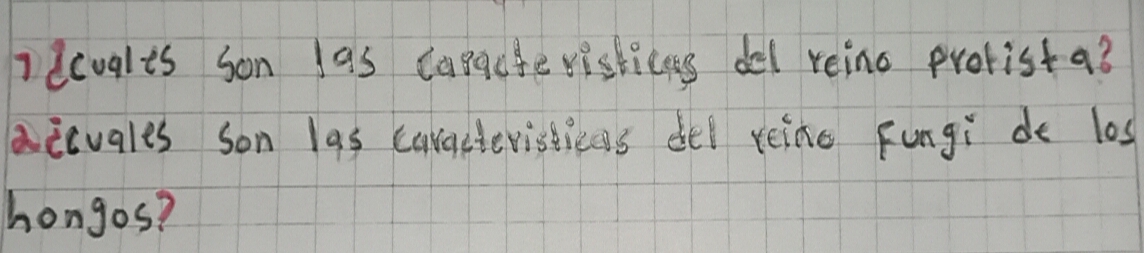 1¿cuales son las caracteristicas del reino protista?
2¿cuales son las caracteristicas del reino Fungi de los
hongos?